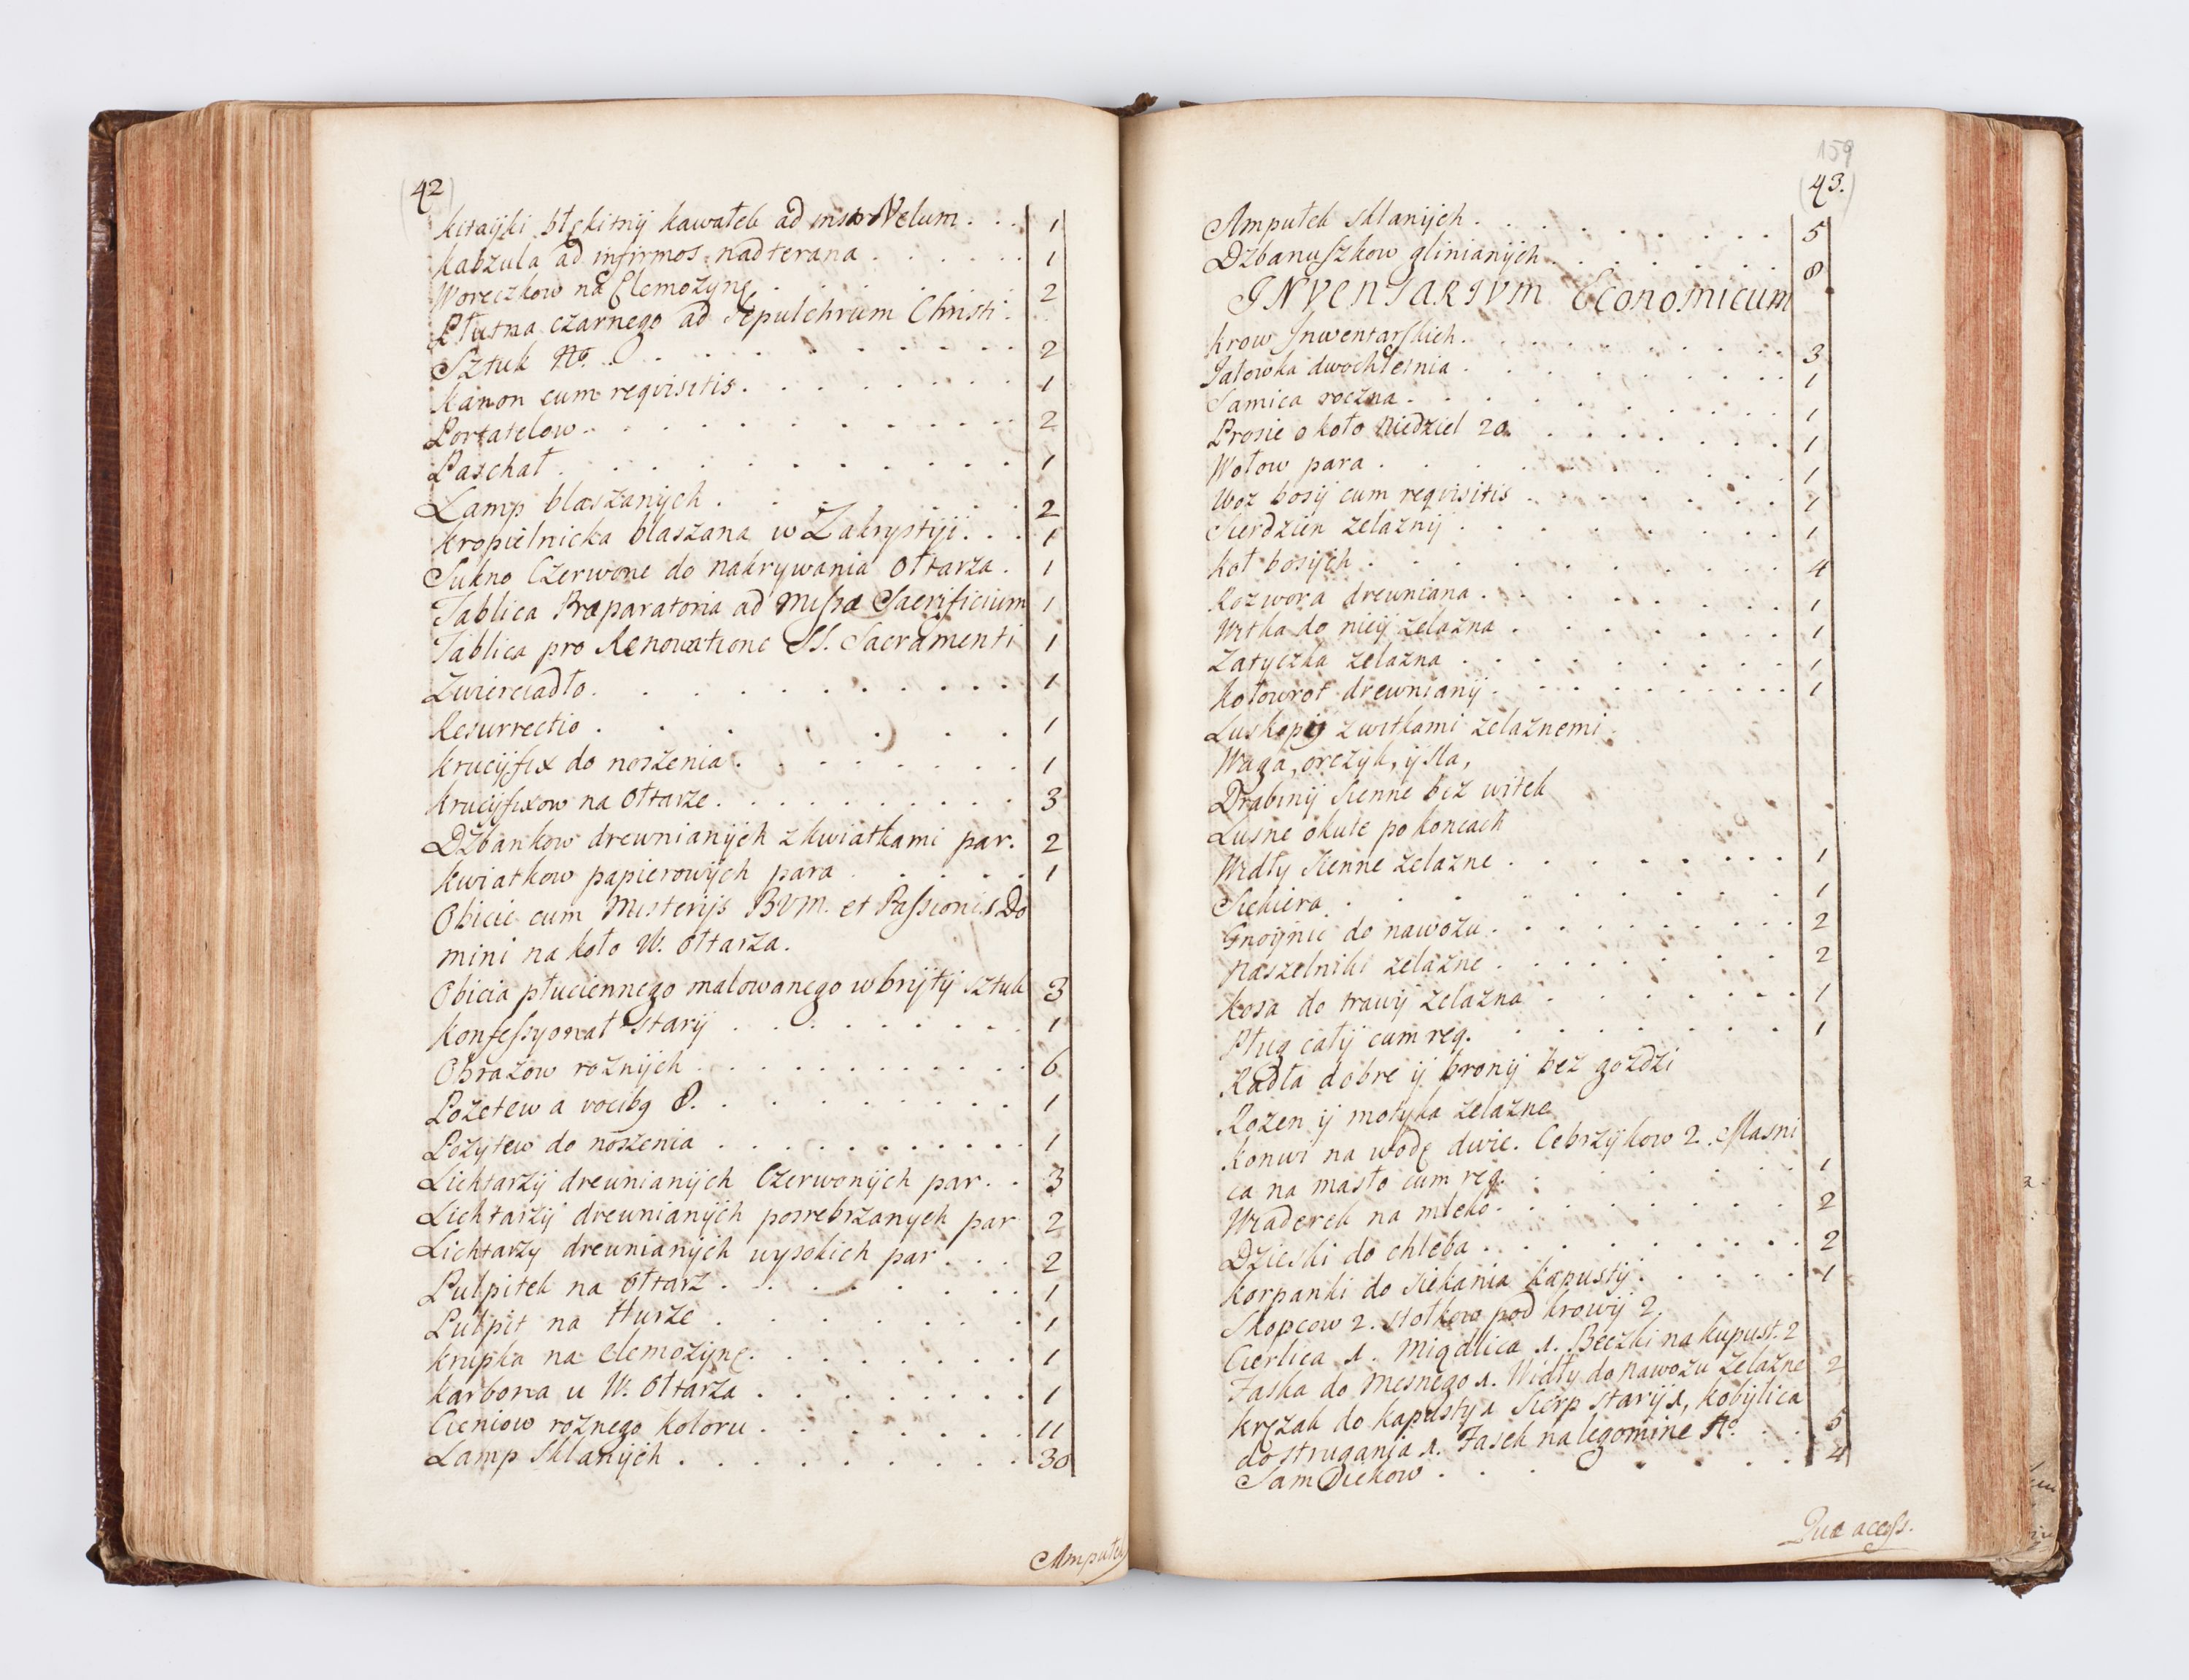 42
kitayki błękitnÿ kawałek ad instar Velum . . . 1
kabzula ad infirmos nadterana . . . . . . 1
Woreczkow na Elemożynę . . . . . . 2
Płutna czarnego ad Sepulchrum Christi .
Sztuk No. . . . . . . . . . 2
kanon cum reqvisitis . . . . . . . 1
Portatelow . . . . . . . . . . 2
Paschał . . . . . . . . . . 1
Lamp blaszanÿch . . . . . . . 2
kropielnicka blaszana w Zakrystÿi . . . 1
Sukno Czerwone do nakrywania ołtarza . 1
Tablica Præparatoria ad Missæ Sacrificium 1
Tablica pro Renovatione SS. Sacramenti 1
Zwierciadło . . . . . . . . . 1
Resurrectio . . . . . . . 1
krucÿfix do noszenia . . . . . . . 1
krucÿfixow na ołtarze . . . . . . . . 3
Dżbankow drewnianÿch z kwiatkami par. 2
kwiatkow papierowÿch para . . . . . 1
Obicie cum Misterÿs BVM. et Passionis Do
mini na koło W. ołtarza.
Obicia płuciennego malowanego w brÿtÿ sztuk 3
konfessyonał starÿ . . . . . . . . 1
Obrazow rożnÿch . . . . . . . . . 6
Pozetew a vocibg 8. . . . . . . . . 1
Pozytew do noszenia . . . . . . . . 1
Lichtarzÿ drewnianÿch Czerwonÿch par . . 3
Lichtarzÿ drewnianÿch posrebrzanych par 2
Lichtarzy drewnianÿch wysokich par . . . 2
Pulpitek na ołtarz . . . . . . . 1
Pulpit na Hurze . . . . . . . 1
krupka na elemożynę . . . . . . . 1
karbona u W. ołtarza . . . . . . . 1
Cieniow rożnego koloru . . . . . . . 11
Lamp Sklanÿch . . . . . . . . 30
Ampułek
159
43.
Ampułek sklanÿch . . . . . . . . . 5
Dzbanuszkow glinianÿch . . . . . . . 8
INVENTARIVM Economicum
krow Inwentarskich . . . . . . . . . 3
Jałowka dwochletnia . . . . . . . . 1
Samica roczna . . . . . . . . . 1
Prosie około Niedziel 20. . . . . . . . 1
Wołow para . . . . . . . . 1
Woz bosÿ cum reqvisitis . . . . . . . 1
Sierdzien zelaznÿ . . . . . . . . . 1
koł bosÿch . . . . . . . . . 4
Rozwora drewniana . . . . . . . . 1
Witka do niey zelazna . . . . . . . 1
Zatyczka zelazna . . . . . . . . . 1
kołowrot drewnianÿ . . . . . . . . . 1
z witkami zelaznemi .
Waga, orczyk, ÿ sla,
Drabinÿ Sienne bez witek
Lusne okute po koncach
Widły Sienne zelazne . . . . . . . . 1
Siekiera . . . . . . . . . 1
Gnoÿnic do nawozu . . . . . . . . . 2
Naszelniki zelazne . . . . . . . . 2
kosa do trawÿ zelazna . . . . . . . 1
Pług całÿ cum req. . . . . . . . . 1
Radła dobre ÿ bronÿ bez gozdzi
Rożen ÿ motyka zelazne
konwi na wodę dwie. Cebrzÿkow 2. Masni
ca na masło cum req. . . . . . . 1
Wiaderek na mleko . . . . . . . . 2
Dzieski do chleba . . . . . . . . . 2
korpanki do siekania kapustÿ . . . . . . 1
Skopcow 2. stołkow pod krowÿ 2.
Cierlica 1. Miądlica 1. Beczki na kupust. 2
Faska do Mesnego 1. Widły do nawozu zelazne 2
kręzak do kapusty 1 Sierp starÿ 1, kobÿlica
do strugania 1. Fasek na legomine No. . . . 5
Sam Diekow . . . . . . . . 4
Quæ access.